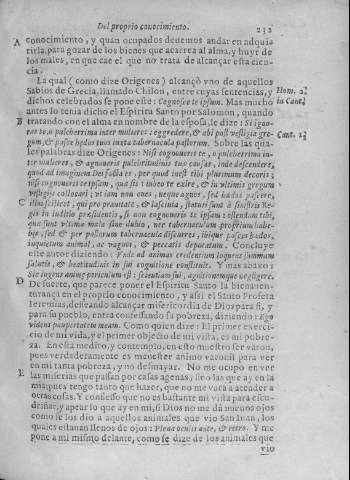 Del proprio conocimiento. 232
A conocimiento, y quan ocupados deuemos andar en adqui-
rirla, para gozar de los bienes que acarrea al alma, y huyr de
los males, en que cae el que no trata de alcançar esta cien-
cia.
La qual (como dize Origenes) alcançò vno de aquellos
Sabios de Grecia, llamado Chilon, entre cuyas sentencias, y
dichos celebrados se pone este: Cognosce te ipsum. Mas mucho
antes lo tenia dicho el Espiritu Santo por Salomon, quando
B tratando con el alma en nombre de la esposa, le dize: Si igno-
ras te ò pulcherrima inter mulieres: eggredere, & abi post vestigia gre-
gum, & pasce hędos tuos iuxta tabernacula pastorum. Sobre las qua-
les palabras dize Origenes: Nisi cognoueris te, ò pulcherrima in-
ter mulieres, & agnoueris pulchritudinis tuę causas, inde descendere,
quod ad imaginem Dei facta es, per quod inest tibi plurimum decoris;
nisi cognoueris te ipsam, quę sis: iubeo te exire, & in vltimis gregum
vestigijs collocari; vt iam non oues, neque agnos, sed hędos pascere,
C illos scilicet, qui pro prauitate, & lasciuia, staturi sunt à sinistris Re-
gis in iuditio presidentis, si non cognoueris te ipsam: ostendam tibi,
quæ sunt vltima mala sine dubio, nec tabernaculum proprium habe-
bis, sed & per pastorum tabernacula discurres, ibique pasces hędos,
inquietum animal, ac vagum, & peccatis deputatum. Concluye
este autor diziendo: Vnde ad animas credentium loquens summam
salutis, & beatitudinis in sui cognitione constituit. Y mas abaxo:
Sic ingens animę periculum est: scientiam sui, agnitionemque negligere.
D De suerte, que parece poner el Espiritu Santo la bienauen-
turança en el proprio conocimiento, y assi el Santo Profeta
Ieremias, desseando alcançar misericordia de Dios para si, y
para su pueblo, entra confessando su pobreza, diziendo: Ego
videns paupertatem meam. Como quien dize: El primer exerci-
cio de mi vida, y el primer objecto de mi vista, es mi pobre-
za. En esta medito, y contemplo, en esto muestro ser varon,
pues verdaderamente es menester animo varonil para ver
en mi tanta pobreza, y no desmayar. No me ocupo en ver
E las miserias que passan por casas agenas, sino las que ay en la
mia; pues tengo tanto que hazer, que no me vaca a atender a
otras cosas. Y confiesso que no es bastante mi vista para escu-
driñar, y apear lo que ay en mi, si Dios no me dà nueuos ojos
como se los dio a aquellos animales que vio San Iuan, los
quales estauan llenos de ojos: Plena oculis ante, & retro. Y me
pone a mi mismo delante, como se dize de los animales que
vio
Hom. 2.
in Cant.
Cant. 1.